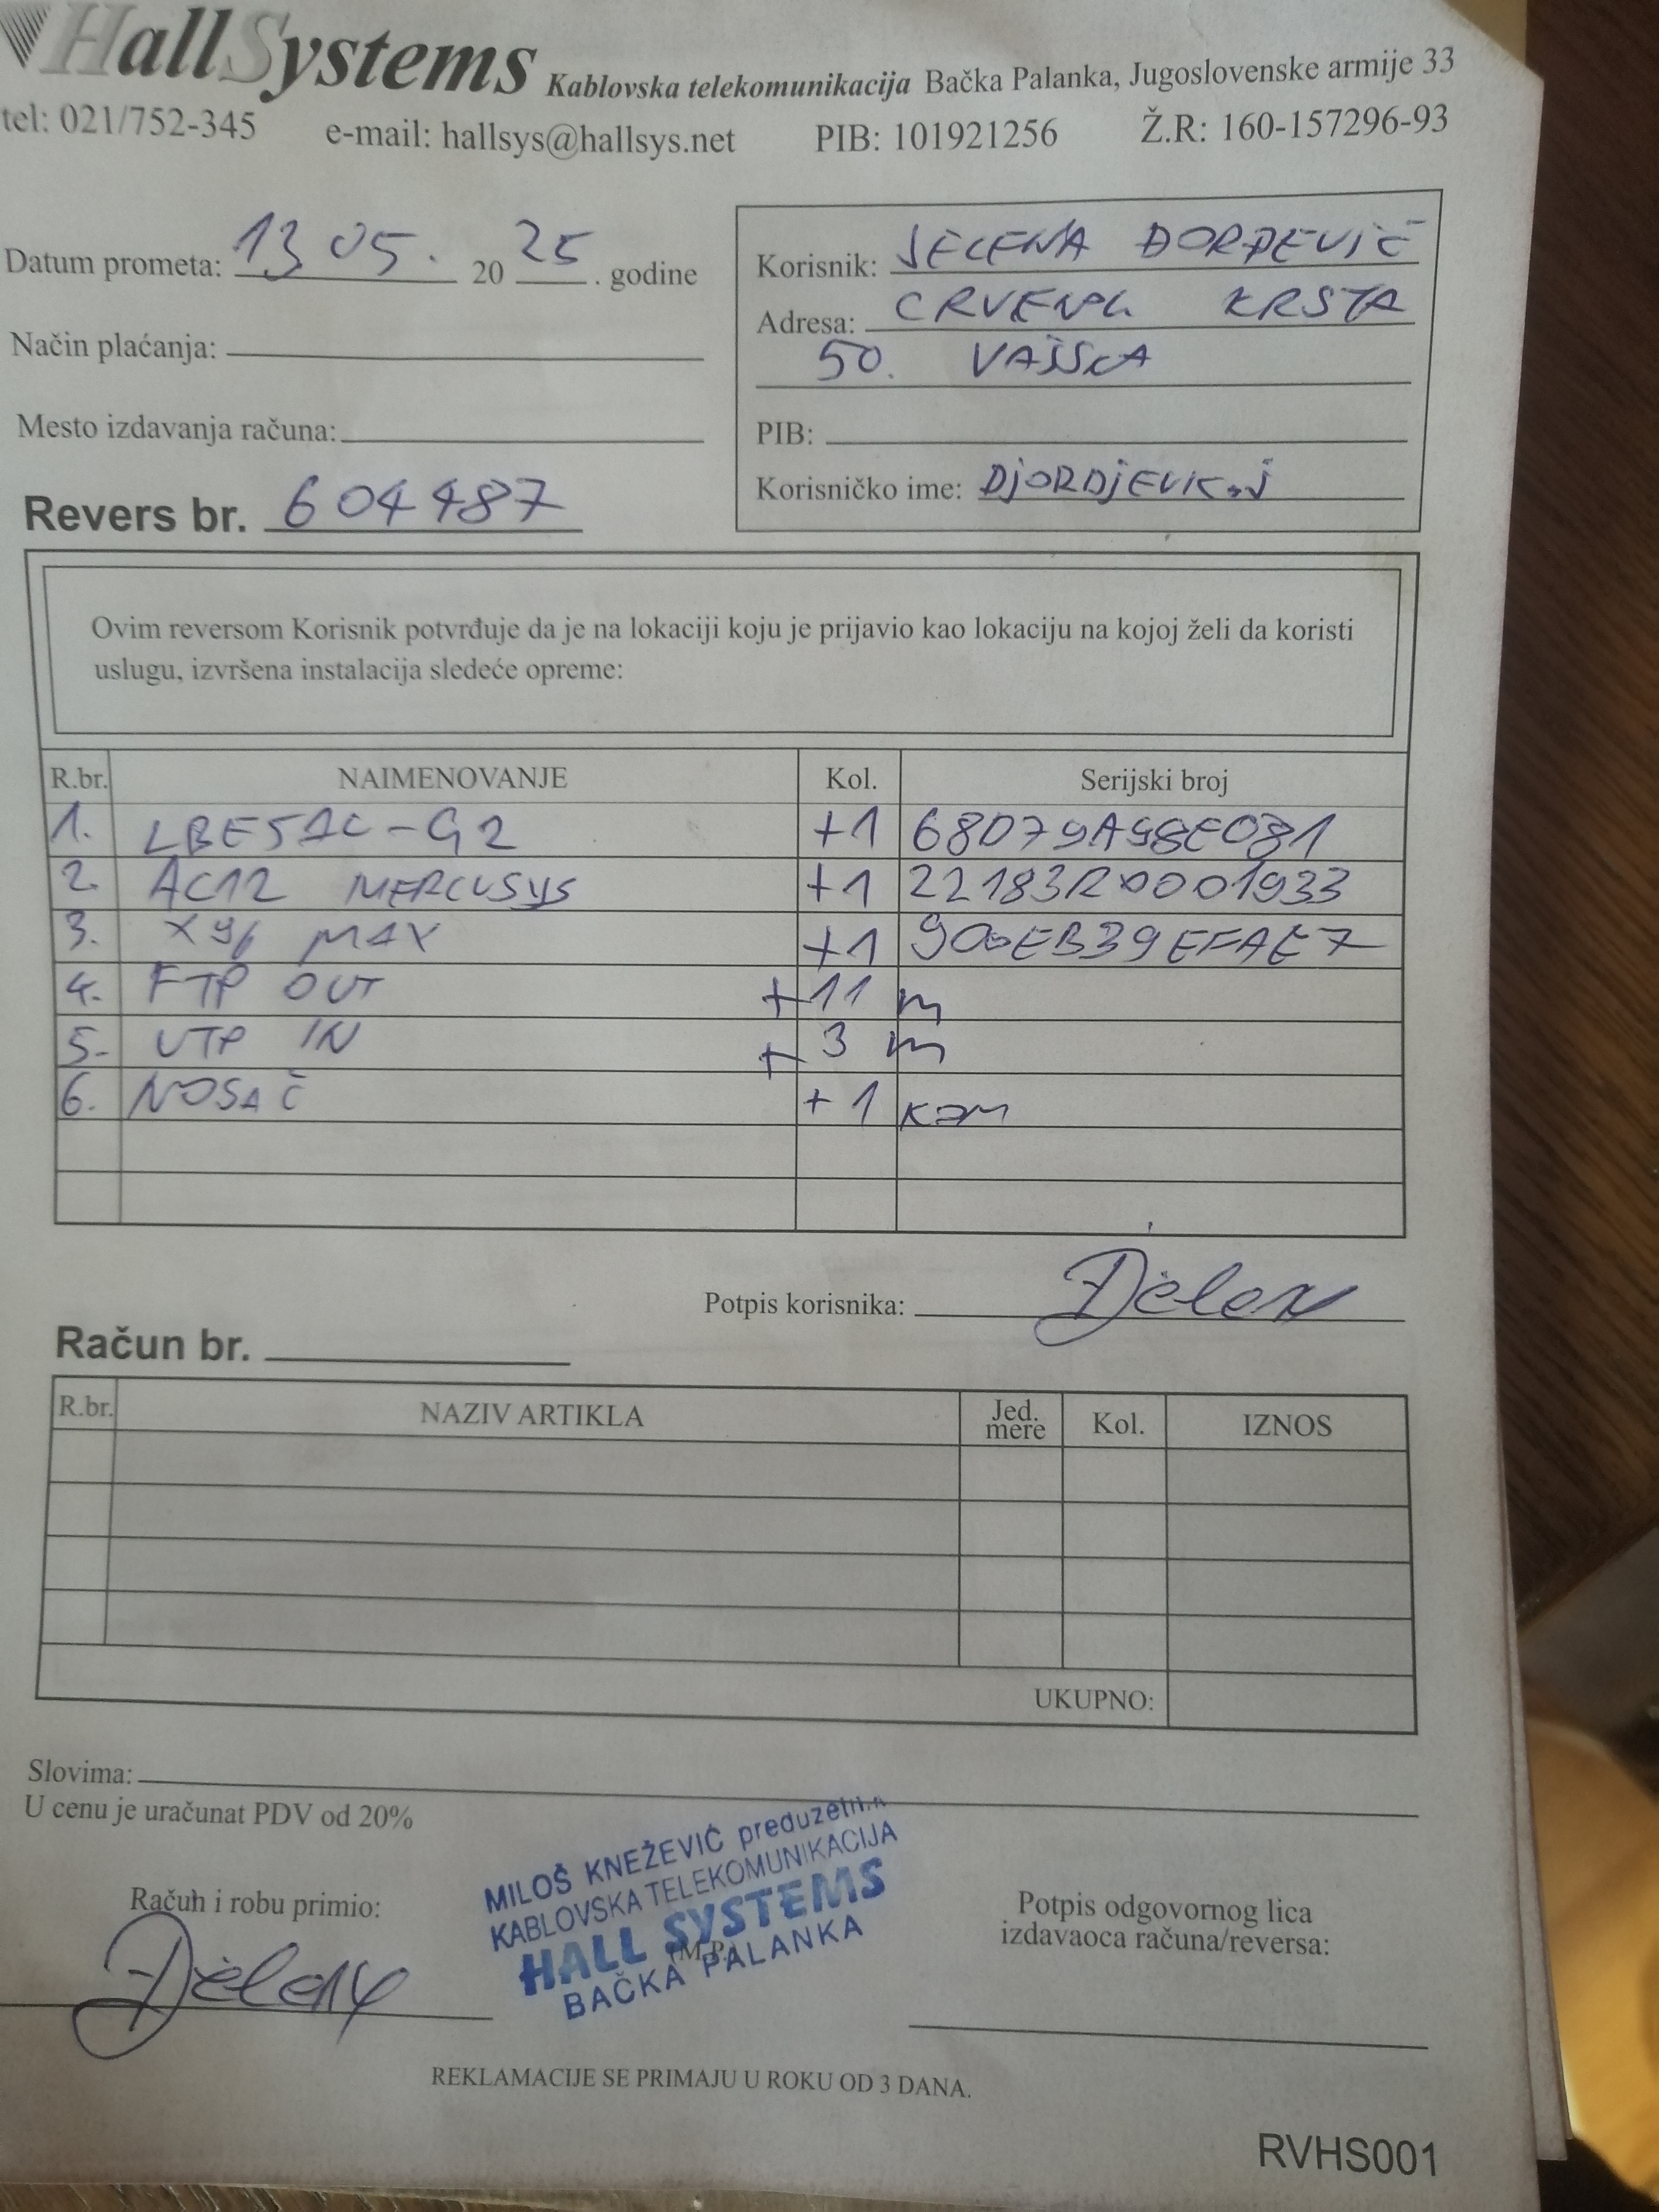 HallSystems Kablovska telekomunikacija Bačka Palanka, Jugoslovenske armije 33
tel: 021/752-345 e-mail: hallsys@hallsys.net PIB: 101921256 Ž.R: 160-157296-93
Datum prometa: 13 05. 20 25 . godine
Način plaćanja:
Mesto izdavanja računa:
Revers br. 604487
Korisnik: JELENA ĐORĐEVIĆ
Adresa: CRVENOG KRSTA
50. VAJSKA
PIB:
Korisničko ime: DjORDjEVIC.J
Ovim reversom Korisnik potvrđuje da je na lokaciji koju je prijavio kao lokaciju na kojoj želi da koristi
uslugu, izvršena instalacija sledeće opreme:
R.br. NAIMENOVANJE Kol. Serijski broj
1. LBE5AC-G2 +1 68D79A98E081
2. AC12 MERCUSYS +1 22183R0001933
3. X96 MAX +1 900EB39EFAE7
4. FTP OUT +11 m
5. UTP IN + 3 m
6. NOSAČ +1 kom
Potpis korisnika:
Račun br.
R.br. NAZIV ARTIKLA Jed. mere Kol. IZNOS
UKUPNO:
Slovima:
U cenu je uračunat PDV od 20%
Račun i robu primio:
MILOŠ KNEŽEVIĆ preduzetnik
KABLOVSKA TELEKOMUNIKACIJA
HALL SYSTEMS
(M.P.)
BAČKA PALANKA
Potpis odgovornog lica
izdavaoca računa/reversa:
REKLAMACIJE SE PRIMAJU U ROKU OD 3 DANA.
RVHS001